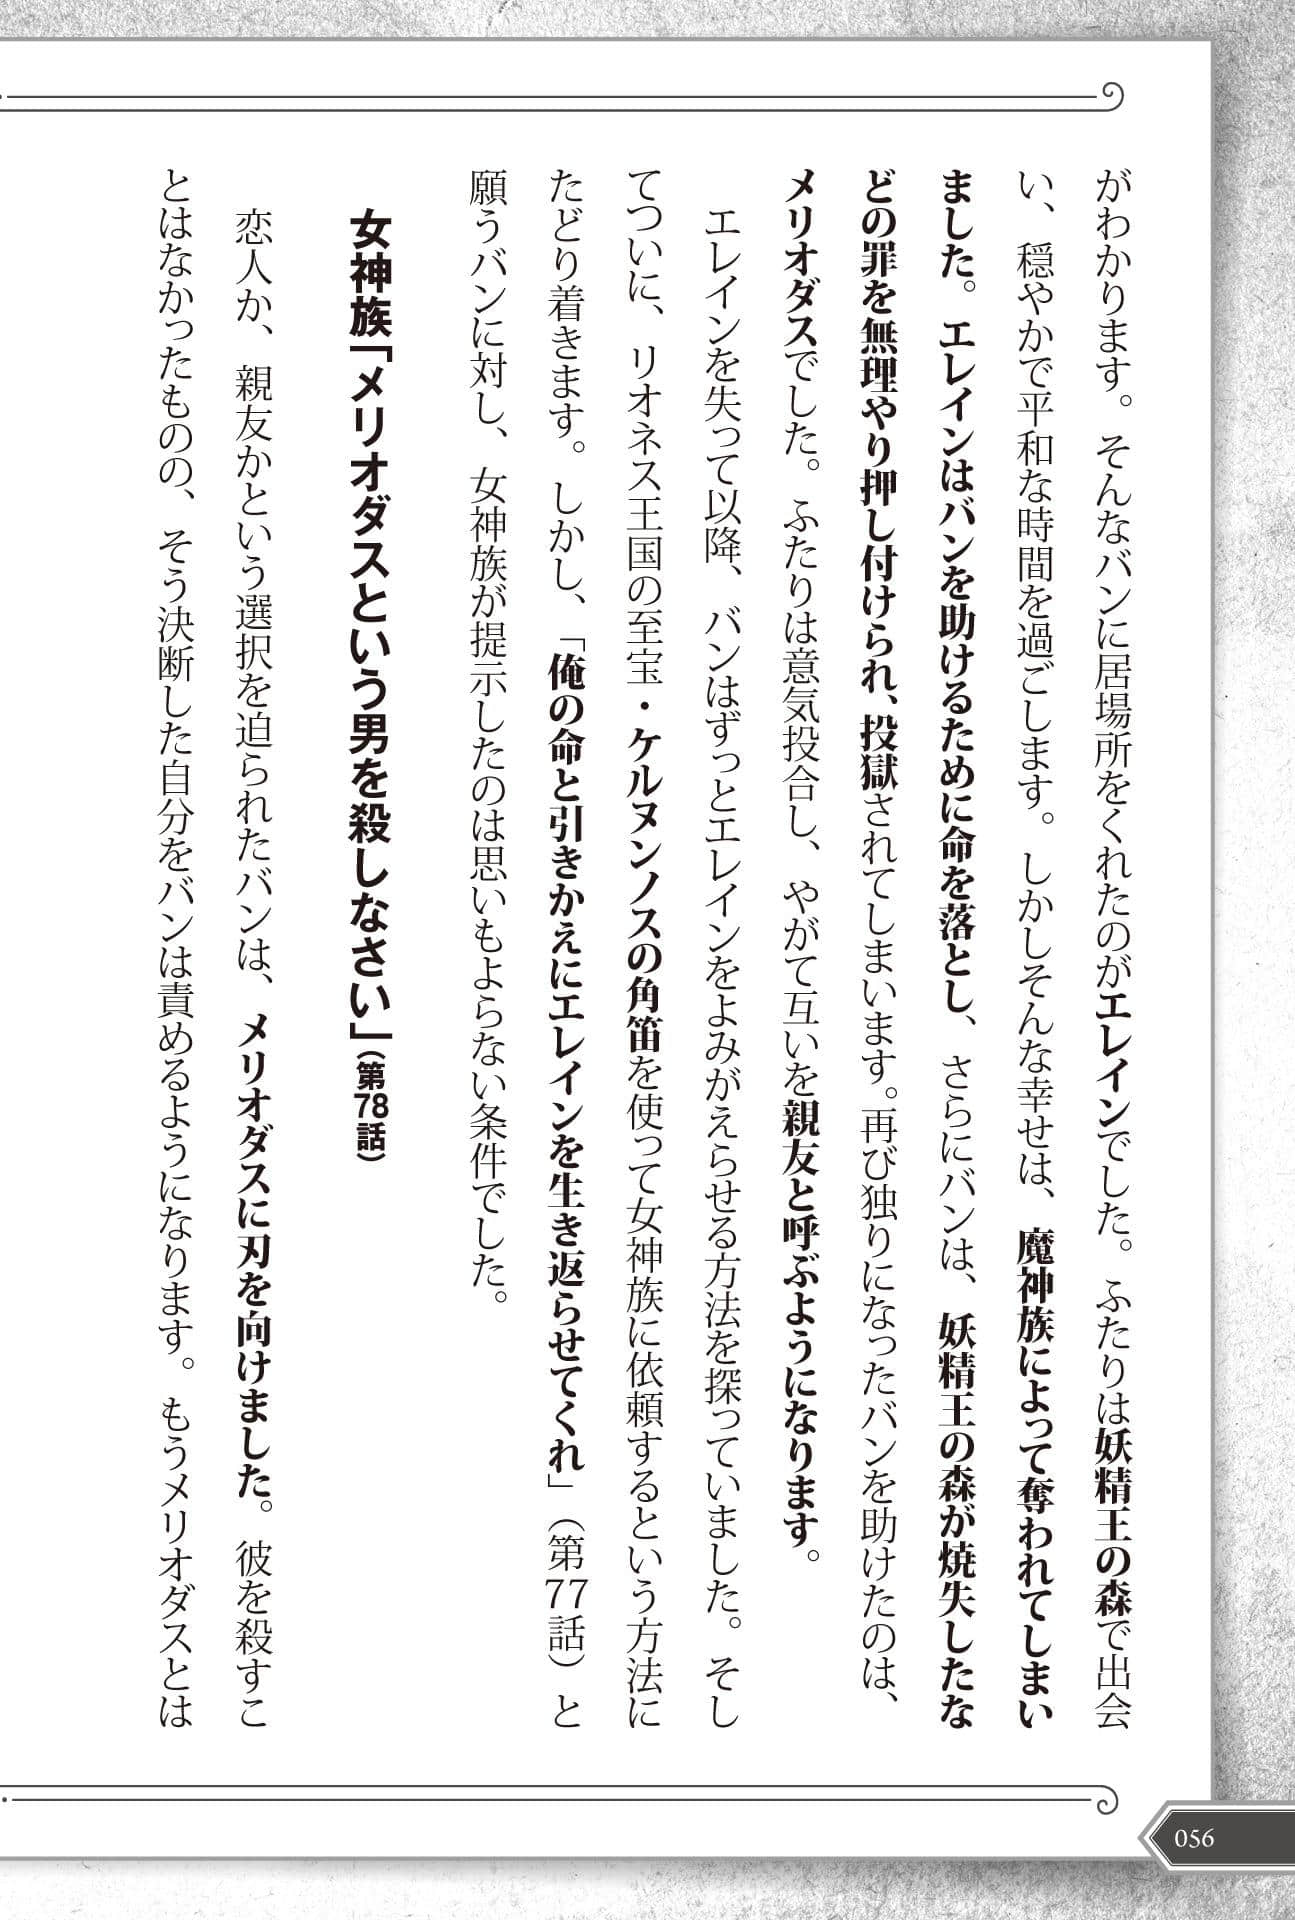 がわかります。そんなバンに居場所をくれたのがエレインでした。ふたりは妖精王の森で出会
い、穏やかで平和な時間を過ごします。しかしそんな幸せは、魔神族によって奪われてしまい
ました。エレインはバンを助けるために命を落とし、さらにバンは、妖精王の森が焼失したな
どの罪を無理やり押し付けられ、投獄されてしまいます。再び独りになったバンを助けたのは、
メリオダスでした。ふたりは意気投合し、やがて互いを親友と呼ぶようになります。
エレインを失って以降、バンはずっとエレインをよみがえらせる方法を探っていました。そし
てついに、リオネス王国の至宝・ケルヌンノスの角笛を使って女神族に依頼するという方法に
たどり着きます。しかし、「俺の命と引きかえにエレインを生き返らせてくれ」（第77話）と
願うバンに対し、女神族が提示したのは思いもよらない条件でした。
女神族「メリオダスという男を殺しなさい」（第78話）
恋人か、親友かという選択を迫られたバンは、メリオダスに刃を向けました。彼を殺すこ
とはなかったものの、そう決断した自分をバンは責めるようになります。もうメリオダスとは
056